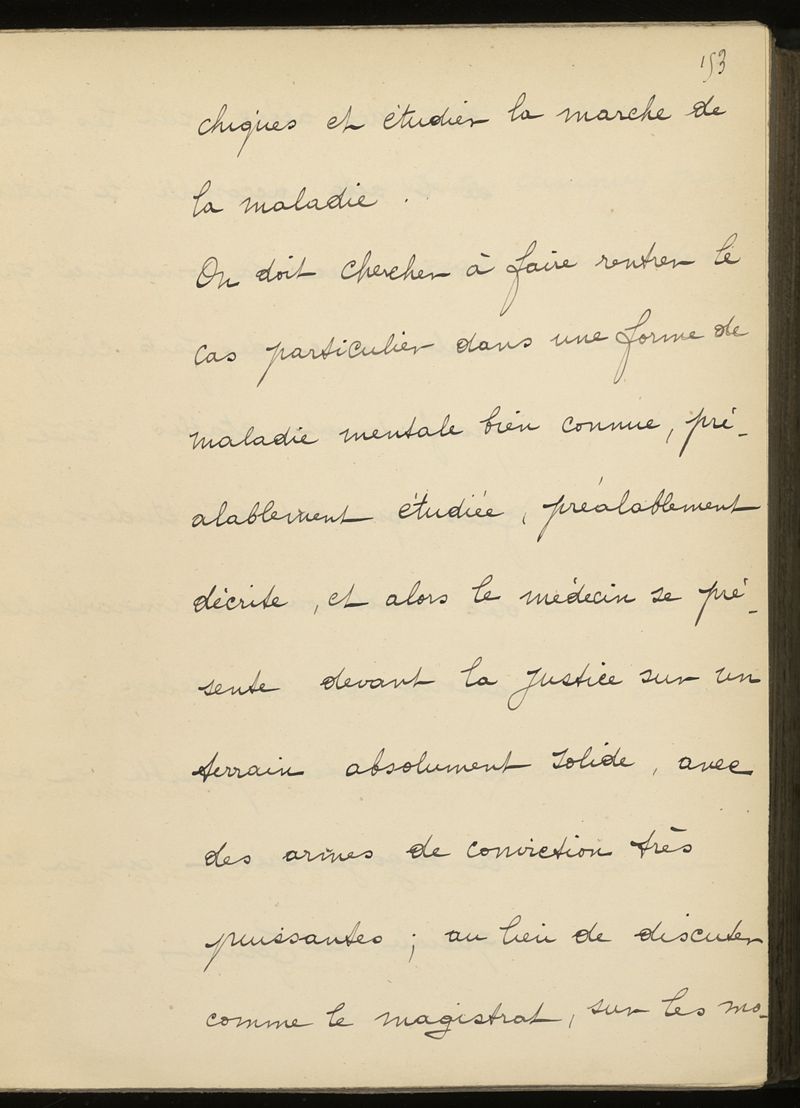 153
chiques et étudier la marche de
la maladie .
On doit chercher à faire rentrer le
cas particulier dans une forme de
maladie mentale bien connue, pré-
alablement étudiée, préalablement
décrite, et alors le médecin se pré-
sente devant la justice sur un
terrain absolument solide, avec
des armes de conviction très
puissantes ; au lieu de discuter
comme le magistrat, sur les mo-